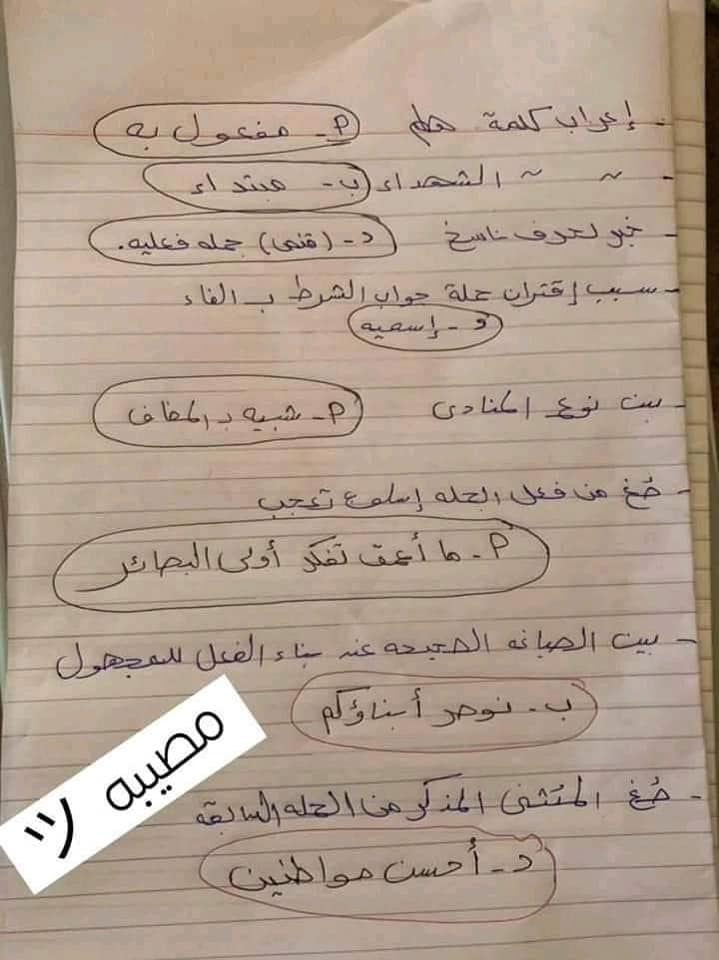 - إعراب كلمة هام أ- مفعول به
- ~ ~ الشهداء ب- مبتداء
- خبر لحرف ناسخ د- (قضى) جمله فعليه.
- سبب إقتران جملة جواب الشرط بـ الفاء
د- إسميه
- بين نوع المنادى أ- شبيه بـ المضاف
- صُغ من فعل الجمله إسلوب تعجب
أ- ما أعمق تفكر أولى البصائر
- بين الصياغه الصحيحه عند بناء الفعل للمجهول
ب- نوصر أبناؤكم
- صُغ المثنى المذكر من الجمله السابقه
د- أحسن مواطنين
مصيبه ツ